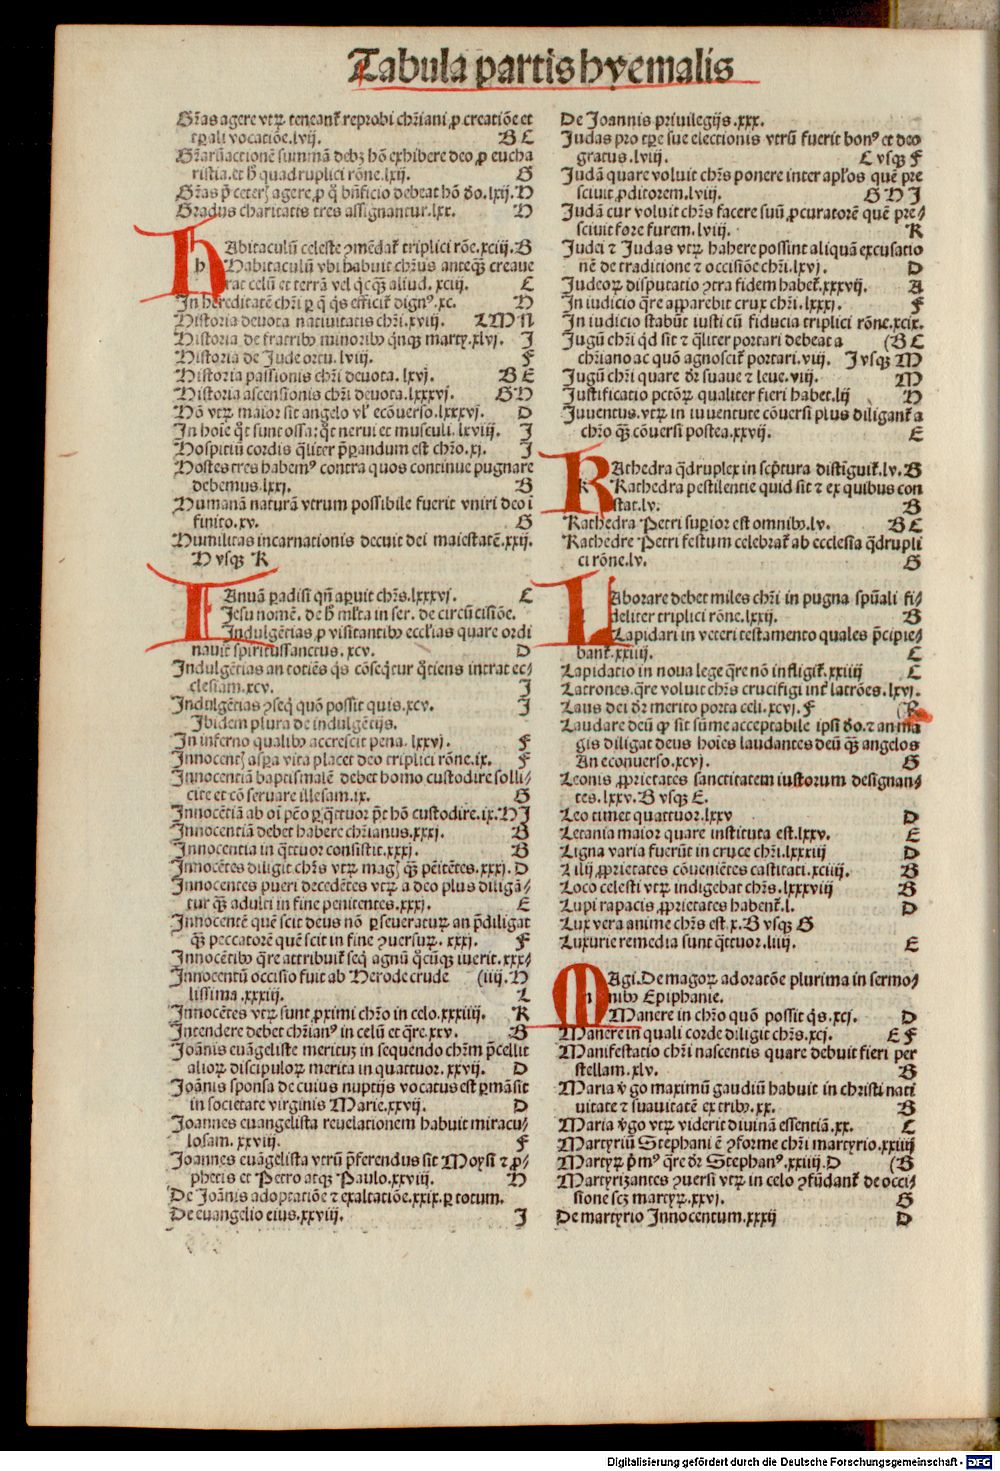 Tabula partis hyemalis
Gr̃as agere vtꝝ teneant᷑ reprobi chr̃iani ꝓ creatiõe et
tꝑali vocatiõe.lvij. B C
Gr̃arũactionẽ summã debꝫ hõ exhibere deo ꝓ eucha
ristia.et hͦ quadruplici rõne.lxij. G
Gr̃as p̃ ceterꝭ agere ꝓ q̃ bñficio debeat hõ deo.lxij.H
Gradus charitatis tres assignantur.lxx. H
HAbitaculũ celeste ꝯmẽdat᷑ triplici rõe.xciij.B
Habitaculũ vbi habuit chr̃us anteqꝫ creaue
rat celũ et terrã vel q̃cqꝫ aliud. xciij. C
In hereditatẽ chr̃i ꝑ q̃ q̃s efficit᷑ dignꝰ.xc. H
Historia deuota natiuitatis chr̃i.xviij. L M N
Historia de fratribꝰ minoribꝰ q̃nqꝫ martꝝ.xlvj. I
Historia de Jude ortu.lviij. F
Historia passionis chr̃i deuota.lxvj. B E
Historia ascensionis chr̃i deuota.lxxxvj. G H
Hõ vtꝝ maior sit angelo vl̕ ecõuerso.lxxxvj. D
In hoĩe q̃t sunt ossa:q̃t nerui et musculi.lxviij. I
Hospitiũ cordis q̃liter p̃parandum est chr̃o.xj. I
Hostes tres habemꝰ contra quos continue pugnare
debemus.lxxj. B
Humanã naturã vtrum possibile fuerit vniri deo ĩ
finito.xv. G
Humilitas incarnationis decuit dei maiestatẽ.xxij.
H vsqꝫ K
IAnuã ꝑadisi qñ aꝑuit chr̃s.lxxxvj. C
Jesu nomẽ. de hͦ ml̕ta in ser. de circũcisiõe.
Indulgẽtias ꝓ visitantibꝰ eccl̕ias quare ordi
nauit spiritussanctus.xcv. D
Indulgẽtias an totiẽs q̃s cõseq̃tur q̃tiens intrat ec⸗
clesiam.xcv. I
Indulgẽtias ꝯseq̃ quõ possit quis.xcv. I
Ibidem plura de indulgẽtijs.
In inferno qualibꝰ accrescit pena. lxxvj. F
Innocentꝭ aspera vita placet deo triplici rõne.ix. F
Innocentiã baptismalẽ debet homo custodire solli⸗
cite et cõseruare illesam.ix. G
Innocẽtiã ab oĩ pc̃o ꝑ q̃ttuor p̃t hõ custodire.ix.H I
Innocentiã debet habere chr̃ianus.xxxj. B
Innocentia in q̃ttuor consistit.xxxj. B
Innocẽtes diligit chr̃s vtꝝ magꝭ qꝫ pẽitẽtes.xxxj.D
Innocentes pueri decedẽtes vtꝝ a deo plus diligã⸗
tur qꝫ adulti in fine penitentes.xxxj. E
Innocentẽ quẽ scit deus nõ ꝑseueraturꝝ an p̃diligat
qꝫ peccatorẽ quẽ scit in fine ꝯuersurꝝ. xxxj. F
Innocẽtibꝰ q̃re attribuit᷑ seq̃ agnũ q̃cũqꝫ iuerit.xxx⸗
Innocentũ occisio fuit ab Herode crude (iiij.H
lissima.xxxiij. L
Innocẽtes vtꝝ sunt ꝓximi chr̃o in celo.xxxiiij. K
Intendere debet chr̃ianꝰ in celũ et q̃re.xxv. B
Joãnis euãgeliste meritũ in sequendo chr̃m p̃cellit
alioꝝ discipuloꝝ merita in quattuor.xxvij. D
Joãnis sponsa de cuius nuptijs vocatus est ꝑmãsit
in societate virginis Marie.xxvij. D
Joannes euangelista reuelationem habuit miracu⸗
losam. xxviij. F
Joannes euãgelista vtrũ p̃ferendus sit Moysi ⁊ ꝓ⸗
phetis et Petro atqꝫ Paulo.xxviij. H
De Joãnis adoptatiõe ⁊ exaltatiõe.xxix.ꝑ totum.
De euangelio eius.xxviij. I
De Joannis priuilegijs.xxx.
Judas pro tꝑe sue electionis vtrũ fuerit bonꝰ et deo
gratus.lviij. C vsqꝫ F
Judã quare voluit chr̃s ponere inter apl̕os quẽ pre
sciuit ꝓditorem.lviij. G H I
Judã cur voluit chr̃s facere suũ ꝓcuratorẽ quẽ pre⸗
sciuit fore furem. lviij. K
Judei ⁊ Judas vtꝝ habere possint aliquã excusatio
nẽ de traditione ⁊ occisiõe chr̃i.lxvj. D
Judeoꝝ disputatio ꝯtra fidem habet᷑.xxxvij. A
In iudicio q̃re apparebit crux chr̃i. lxxxj. F
In iudicio stabũt iusti cũ fiducia triplici rõne.xcix.
Jugũ chr̃i q̃d sit ⁊ q̃liter portari debeat a (B C
chr̃iano ac quõ agnoscit᷑ portari.viij. I vsqꝫ M
Jugũ chr̃i quare dr̃ suaue ⁊ leue.viij. M
Justificatio pctõꝝ qualiter fieri habet.lij H
Juuentus.vtꝝ in iuuentute cõuersi plus diligant᷑ a
chr̃o qꝫ cõuersi postea.xxvij. E
KAthedra q̃druplex in scp̃tura distiguit᷑.lv. B
Kathedra pestilentie quid sit ⁊ ex quibus con
stat.lv. B
Kathedra Petri superior est omnibꝰ.lv. B C
Kathedre Petri festum celebrat᷑ ab ecclesia q̃drupli
ci rõne.lv. G
LAborare debet miles chr̃i in pugna spũali fi⸗
deliter triplici rõne.lxxij. B
Lapidari in veteri testamento quales p̃cipie⸗
bant᷑.xxiiij. C
Lapidatio in noua lege q̃re nõ infligit᷑.xxiiij C
Latrones.q̃re voluit chr̃s crucifigi int᷑ latrões.lxvj.
Laus dei dr̃ merito porta celi.xcvj.F (K
Laudare deũ ꝙ sit sũme acceptabile ipsi deo.⁊ an ma
gis diligat deus hoĩes laudantes deũ qꝫ angelos
An econuerso.xcvj. G
Leonis ꝓprietates sanctitatem iustorum designan⸗
tes.lxxv.B vsqꝫ E.
Leo timet quattuor.lxxv D
Letania maior quare instituta est.lxxv. E
Ligna varia fuerũt in cruce chr̃i.lxxxiij D
Lilij ꝓprietates cõueniẽtes castitati.xciiij. B
Loco celesti vtꝝ indigebat chr̃s.lxxxviij B
Lupi rapacis ꝓprietates habent᷑.l. D
Lux vera anime chr̃s est x.B vsqꝫ G
Luxurie remedia sunt q̃ttuor.liiij. E
MAgi.De magoꝝ adoratõe plurima in sermo⸗
nibꝰ Epiphanie.
Manere in chr̃o quõ possit q̃s.xcj. D
Manere in quali corde diligit chr̃s.xcj. E F
Manifestatio chr̃i nascentis quare debuit fieri per
stellam.xlv. B
Maria v̾go maximũ gaudiũ habuit in christi nati
uitate ⁊ suauitatẽ ex tribꝰ.xx. B
Maria v̾go vtꝝ viderit diuinã essentiã.xx. C
Martyriũ Stephani ẽ ꝯforme chr̃i martyrio.xxiiij
Martyꝝ p̃mꝰ q̃re dr̃ Stephanꝰ.xxiiij.D (B
Martyrizantes ꝯuersi vtꝝ in celo ꝯfũdant᷑ de occi⸗
sione scꝫ martyꝝ.xxvj. G
De martyrio Innocentum.xxxij D
Digitalisierung gefördert durch die Deutsche Forschungsgemeinschaft - DFG